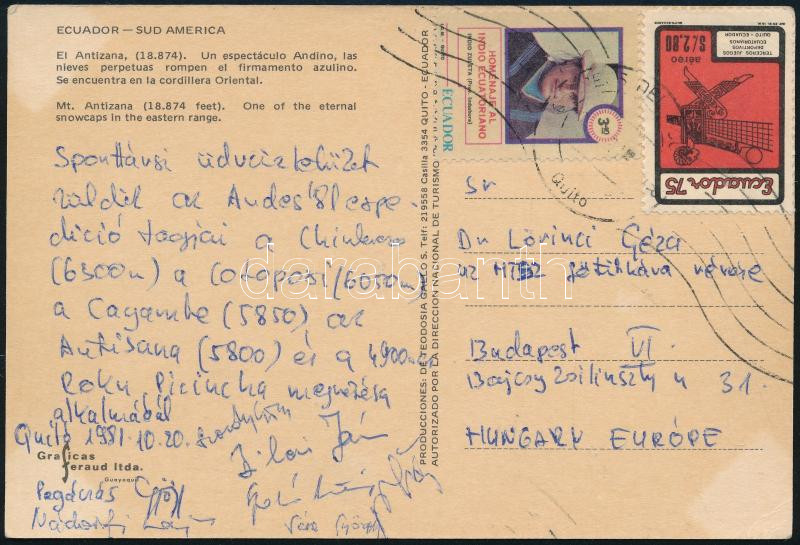 ECUADOR — SUD AMERICA
El Antizana, (18.874). Un espectáculo Andino, las
nieves perpetuas rompen el firmamento azulino.
Se encuentra en la cordillera Oriental.
Mt. Antizana (18.874 feet). One of the eternal
snowcaps in the eastern range.
Sporttársi üdvözletüket
küldik az Andes '81 expe-
díció tagjai a
(6300m) a Cotopaxi (6050m)
a Cayambe (5850) az
Antisana (5800) és a 4900m
Roku Picincha megmászása
alkalmából
Quito 1981.10.20.
Graficas
feraud ltda.
Guayaquil
PRODUCCIONES: DE TEODOSIA GALLO S. Telf: 219558 Casilla 3354 QUITO - ECUADOR
AUTORIZADO POR LA DIRECCION NACIONAL DE TURISMO
HOMENAJE AL
INDIO ECUATORIANO
ECUADOR
TERCEROS JUEGOS
DEPORTIVOS
ECUATORIANOS
QUITO - ECUADOR
aéreo
S/2.80
Ecuador 75
Quito
Sr
Dr Lőrinci Géza
Budapest VI.
Bajcsy Zsilinszky u 31.
HUNGARY EURÓPE
darabanth